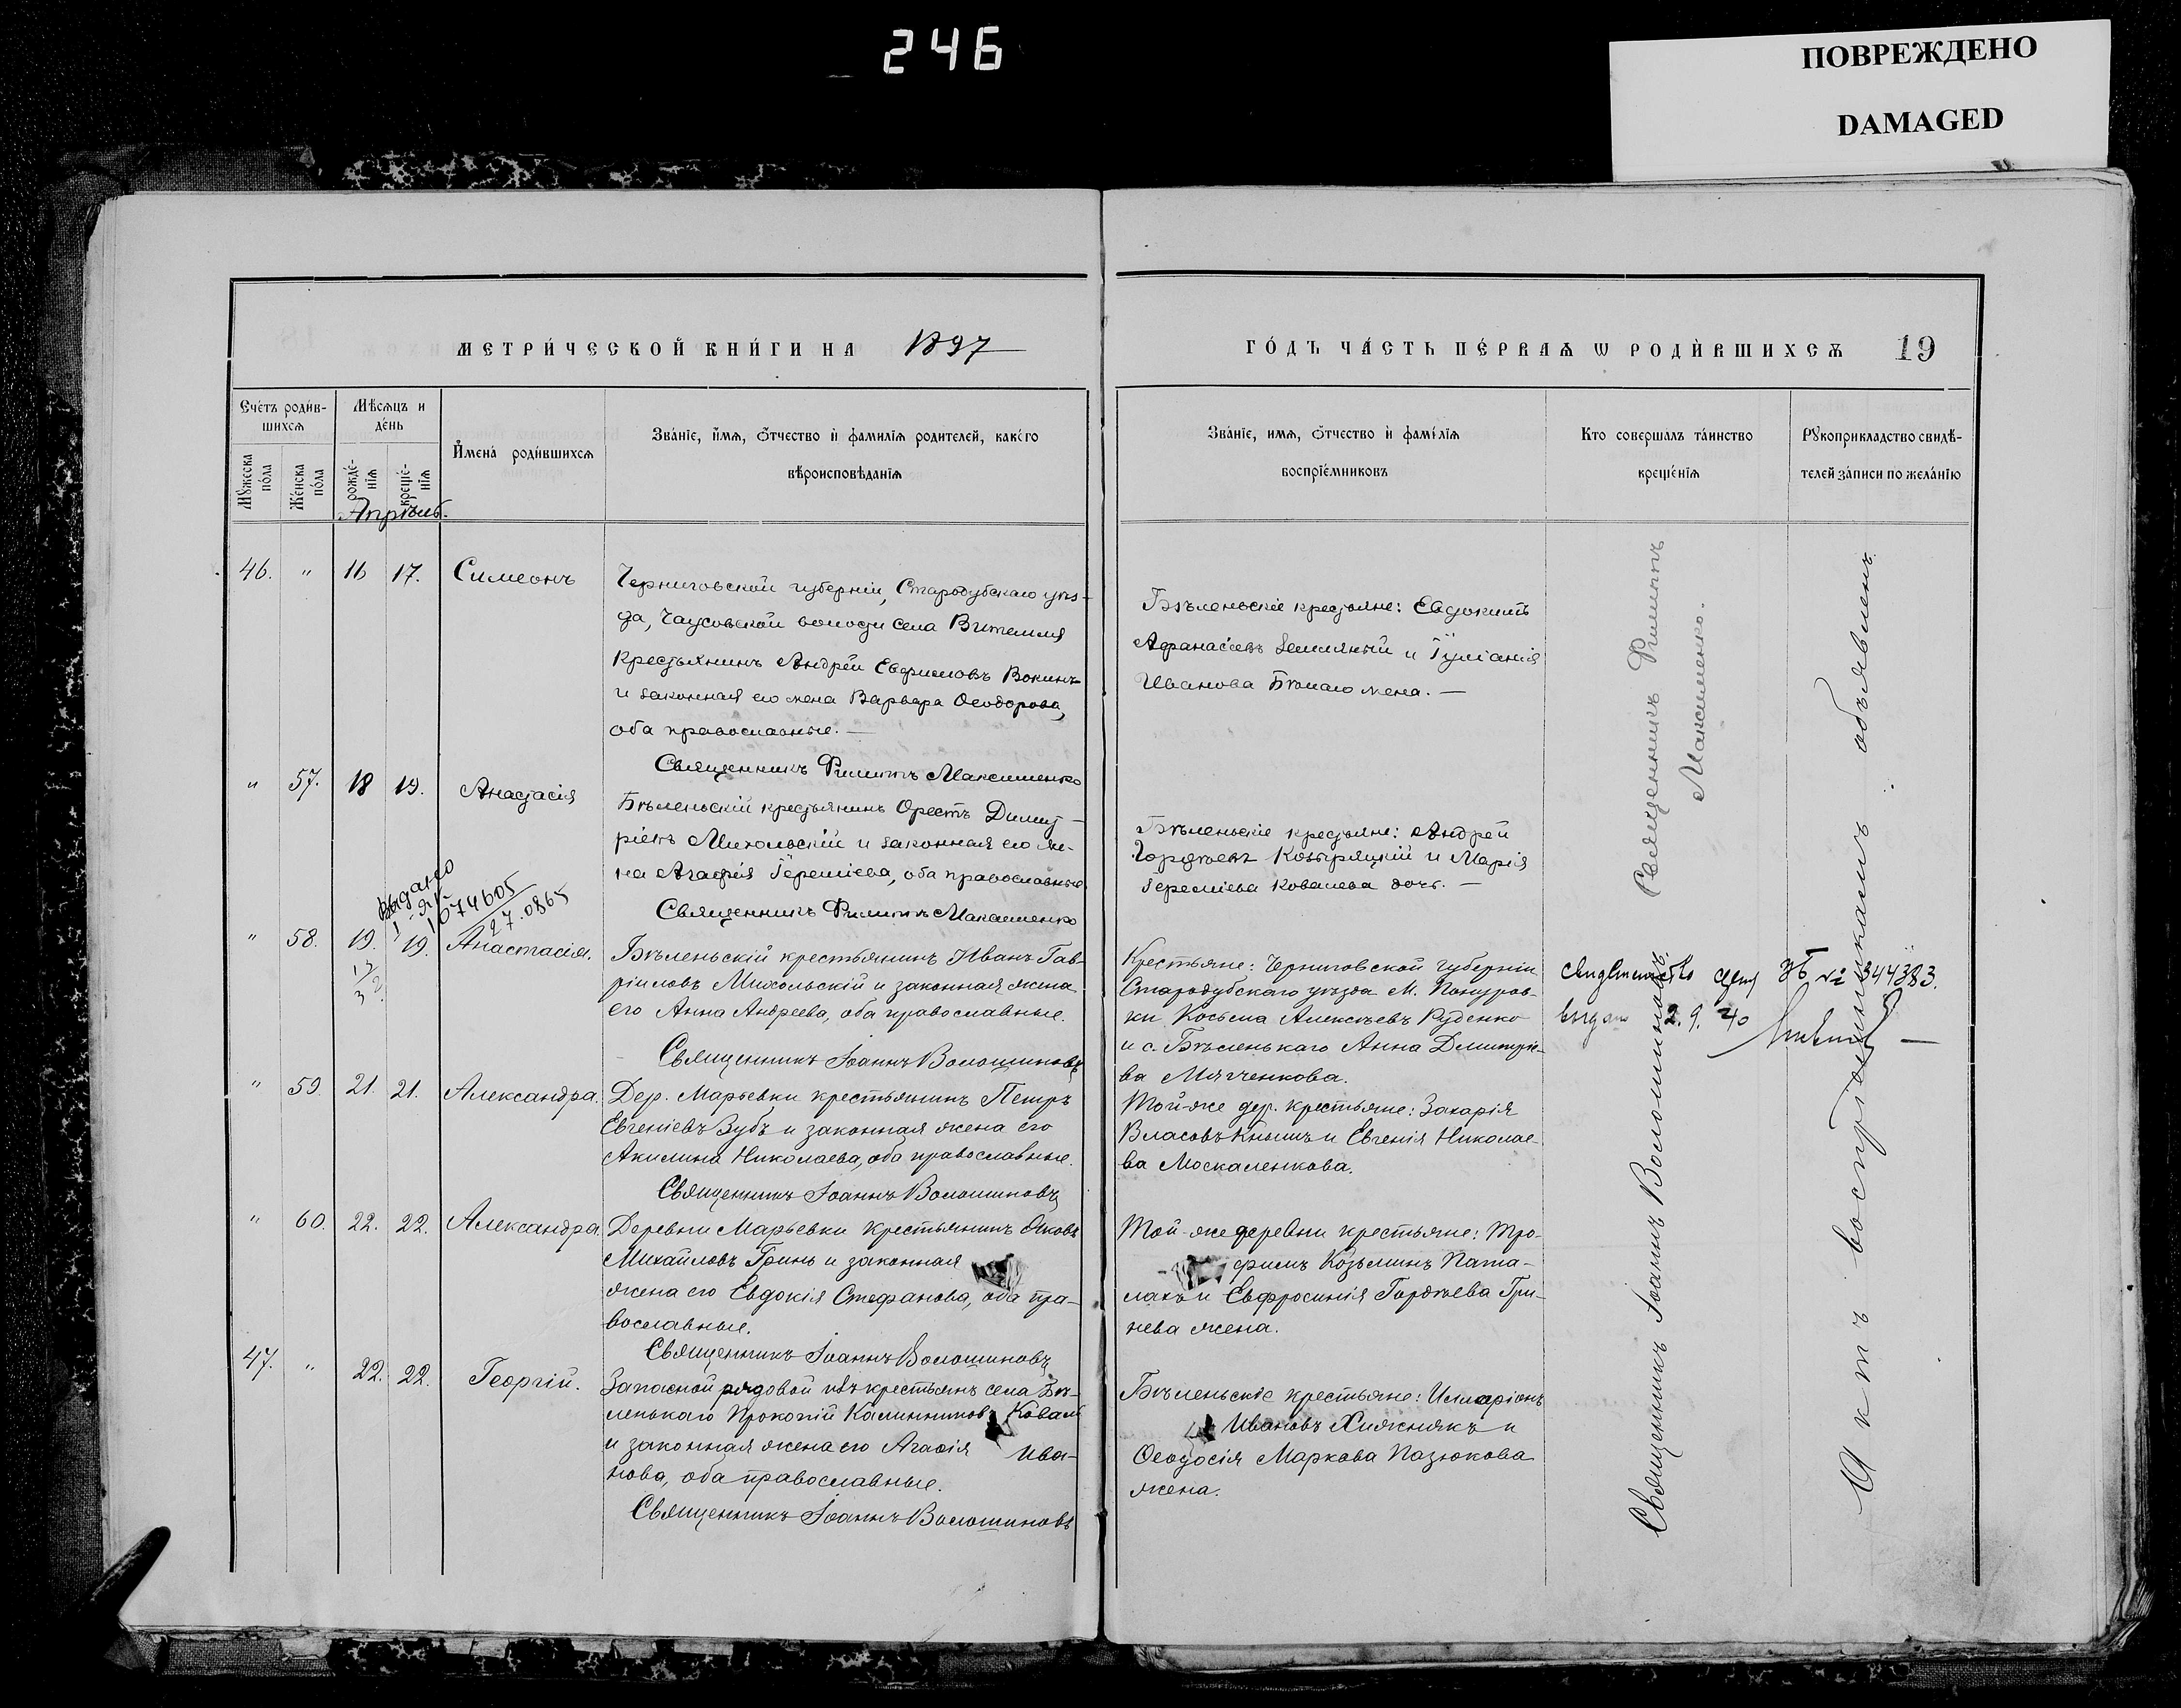 246
ПОВРЕЖДЕНО
DAMAGED
МЕТРИ́ЧЕСКОЙ КНИ́ГИ НА 1897
ГО́ДЪ ЧА́СТЬ ПЕ́РВАѦ Ѡ РОДИ́ВШИХСѦ 19
Сче́тъ роди́в-
шихсѧ
Мꙋ́жеска по́ла
Же́нска по́ла
Мѣ́сѧцъ и
де́нь
рожде́-
нїѧ
креще́-
нїѧ
Апрѣль.
И҆мена̀ роди́вшихсѧ
Зва́нїе, и҆́мѧ, ѻ҆́тчество и҆ фами́лїѧ роди́телей, како́го
вѣроисповѣ́данїѧ
Зва́нїе, имѧ, ѻ҆́тчество и҆ фамі́лїѧ
воспрїе́мниковъ
Кто совершалъ та́инство
креще́нїѧ
Рꙋкоприкладство свидѣ́-
телей за́писи по жела́нїю
46. " 16 17. Симеонъ
Черниговской губерніи, Стародубскаго уѣз-
да, Чаусовской волости села Витемля
крестьянинъ Андрей Евфимовъ Вокинъ
и законная его жена Варвара Ѳеодорова,
оба православные. —
Священникъ Филиппъ Максименко
Бѣленьскіе крестьяне: Евдокимъ
Афанасіевъ Землякій и Іуліанія
Иванова Бѣлаго жена. —
Священникъ Филиппъ
Максименко.
" 57. 18 19. Анастасія
Бѣленьскій крестьянинъ Орестъ Димит-
ріевъ Михольскій и законная его же-
на Агафія Іереміева, оба православные
Священникъ Филиппъ Максименко
Бѣленьскіе крестьяне: Андрей
Гордѣевъ Козыряцкій и Марія
Іереміева Ковалева дочь. —
Выдано
1074605
27.0865
" 58. 19. 19. Анастасія.
Бѣленьскій крестьянинъ Иванъ Гав-
ріиловъ Михольскій и законная жена
его Анна Андреева, оба православные.
Священникъ Іоаннъ Волошиновъ
Крестьяне: Черниговской губерніи
Стародубскаго уѣзда М. Понуров-
ки Косьма Алексѣевъ Руденко
и с. Бѣленькаго Анна Димитріе-
ва Мягченкова.
свидетельство № 344383.
выдано 2. 9. 40
" 59. 21. 21. Александра.
Дер. Марьевки крестьянинъ Петръ
Евгеніевъ Зубъ и законная жена его
Акилина Николаева, оба православные.
Священникъ Іоаннъ Волошиновъ
Той-же дер. крестьяне: Захарія
Власовъ Кнышъ и Евгенія Николае-
ва Москаленкова.
" 60. 22. 22. Александра.
Деревни Марьевки крестьянинъ Яковъ
Михайловъ Гринь и законная
жена его Евдокія Стефанова, оба пра-
вославные.
Священникъ Іоаннъ Волошиновъ
Той-же деревни крестьяне: Тро-
фимъ Козьминъ Пата-
лахъ и Евфросинія Гордѣева Гри-
нева жена.
47. " 22. 22. Георгій.
Запасной рядовой изъ крестьянъ села Бѣ-
ленькаго Прокопій Калинниковъ Коваль
и законная жена его Агафія Ива-
нова, оба православные.
Священникъ Іоаннъ Волошиновъ
Бѣленьскіе крестьяне: Илларіонъ
Ивановъ Хижнякъ и
Ѳеодосія Маркова Пазюкова
жена.
Священникъ Іоаннъ Волошиновъ.
Актъ воспріемникамъ объявленъ